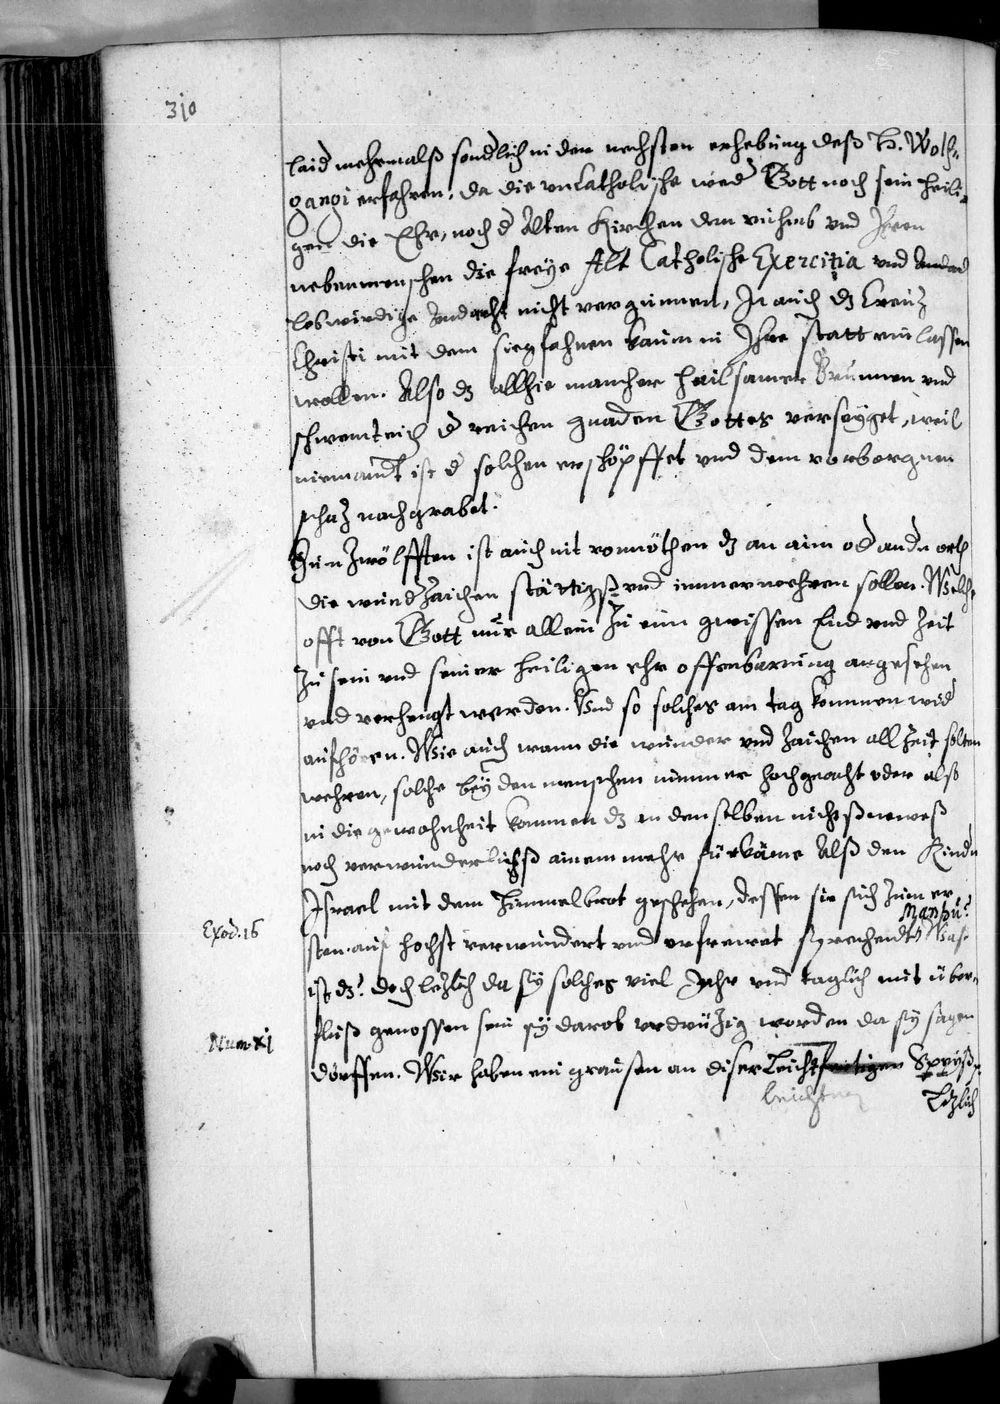 310
laid mehrmalß sondlich in der nechsten erhebung deß H. Wolf-
gangi erfahren, da die uncatholische wed Gott noch sein heili-
gen die Ehr, noch d Alten Kirchen den ruhmb und Ihren
nebenmenschen die freye Alt Catholische Exercitia und
lobwirdige Andacht nicht vergunnen, Ja auch dz Creuz
Christi mit dem siegfahnen kaum in Ihre statt einlassen
wollen. Also dz allhie mancher heilsamer Brunnen und
schwemteich d reichen gnaden Gottes verseyget, weil
niemandt ist d solchen erschöpffet und dem verborgnen
schaz nachgrabet.
Zum Zwölfften ist auch nit vonnöthen dz an aim od andn orth
die wundzaichen stättigß und immer wehren sollen. Welche
offt von Gott nur allein zu eim gwissen End und Zeit
zu sein und seiner heiligen ehr offenbarung angesehen
und verhengt werden. Und so solches am tag kommen wid
aufhören. Wie auch wann die wunder und zaichen all Zeit solten
wehren, solche bey den menschen nimmer hochgeacht oder alß
in die gewohnheit kommen dz an denselben nichts newes
noch verwunderlichß ainem mehr fürkäme Alß den Kindn
Israel mit dem Himmelbrot geschehen, dessen sie sich zum er-
Exod. 16
Manhu?
sten auf hochst verwundert und erfrewet sprechendt Was
ist dz? doch letzlich da sy solches viel Jahr und taglich mit über-
fluß genossen sein sy darob urdrüzig worden da sy sagen
Num. xi
dörffen. Wir haben ein grausen an diser Leichtfertigen Speyß
Letzlich